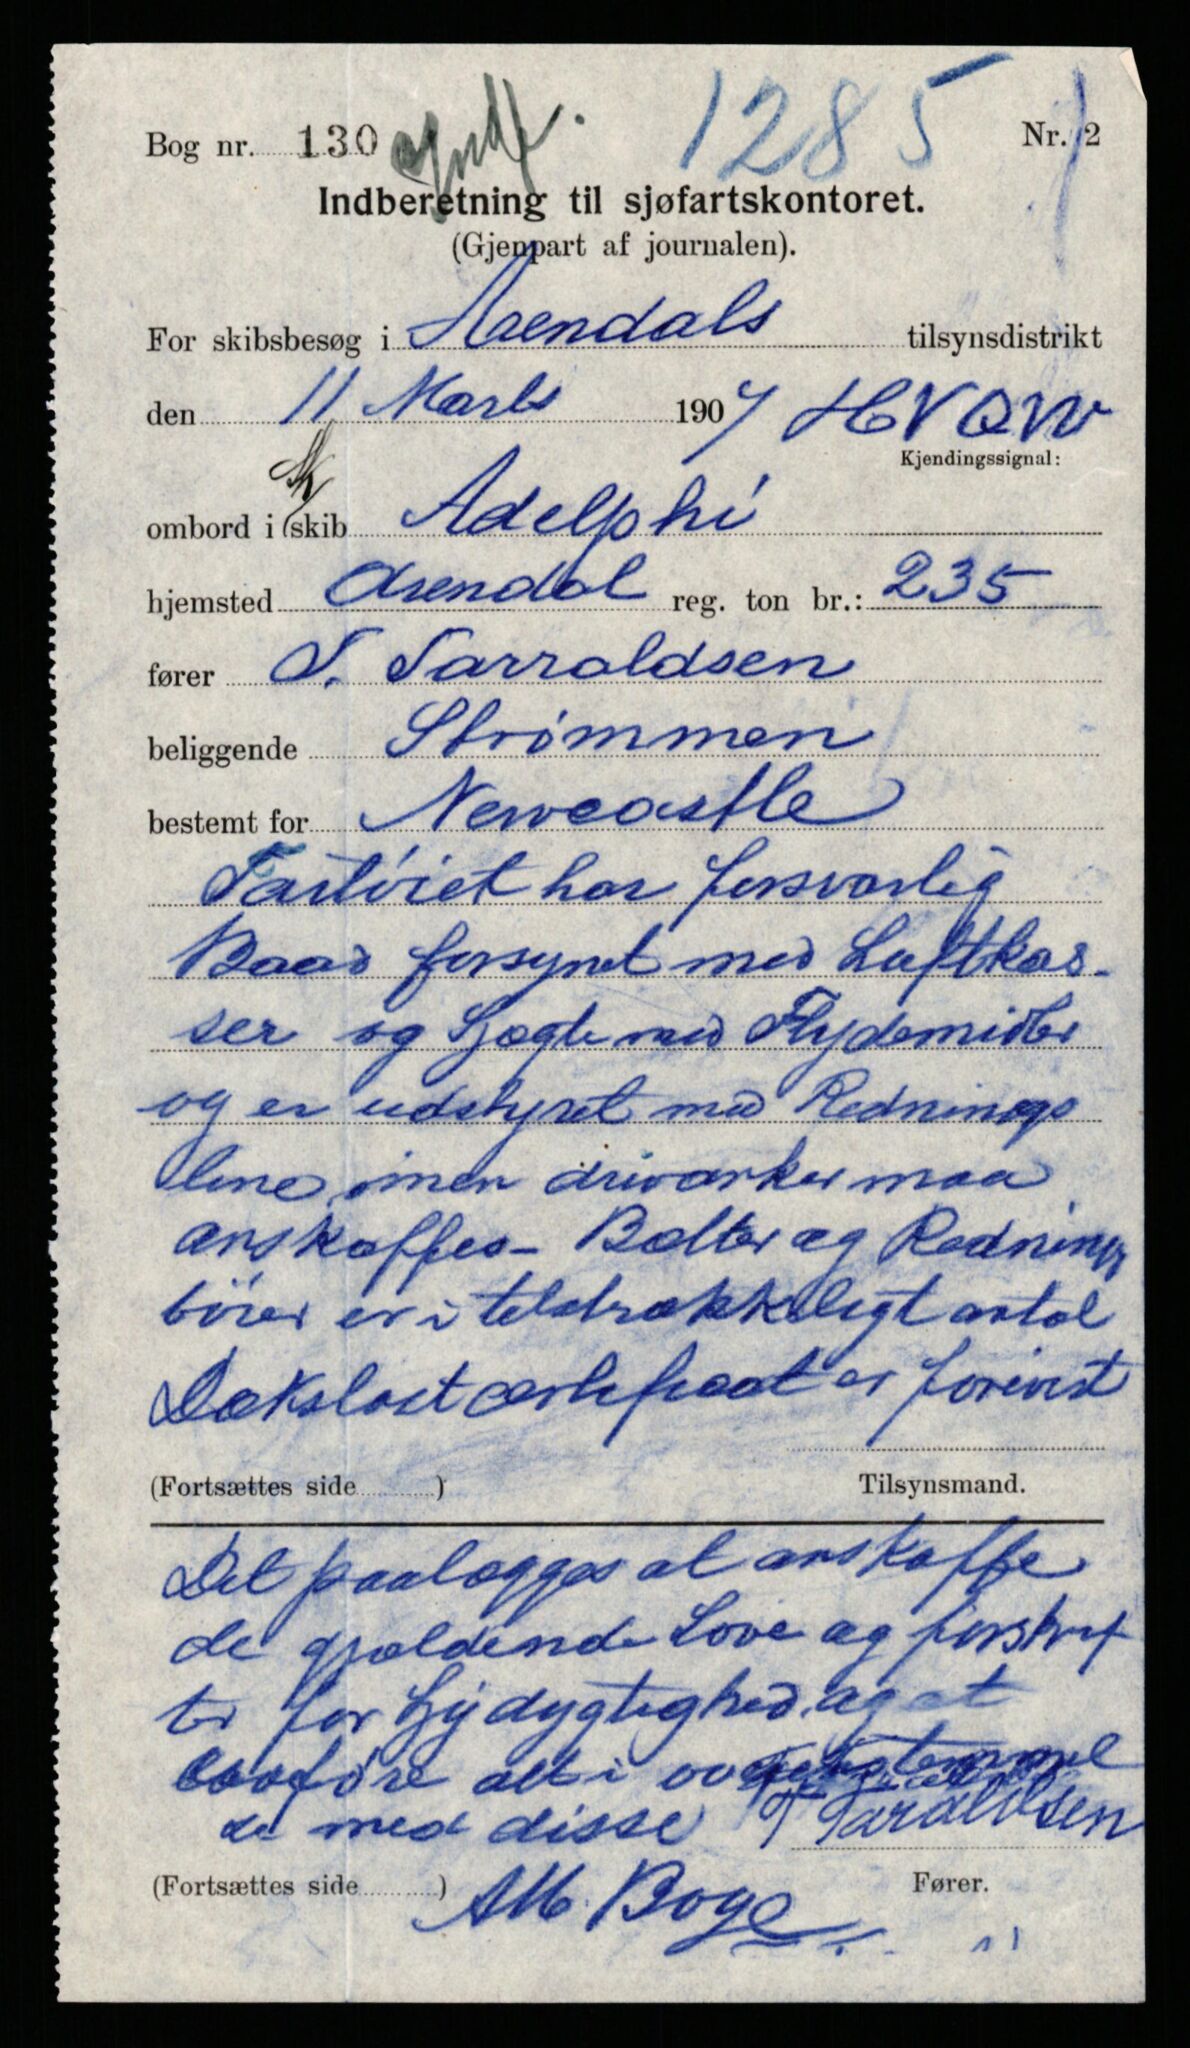 1285
Bog nr. 130 Nr. 2
Indberetning til sjøfartskontoret.
(Gjenpart af journalen).
For skibsbesøg i Arendals tilsynsdistrikt
den 11 Marts 1907 HVQW
Kjendingssignal:
ombord i Sk skib Adelphi
hjemsted Arendal reg. ton br.: 235
fører T. Tarraldsen
beliggende Strømmen
bestemt for Newcastle
Fartøiet har forsvarlig
Baad forsynet med Luftkas-
ser og Sjægte med Flydemidler
og er udstyret med Rednings
line, men drivanker maa
anskaffes - Bælter og Rednings
bøier er i tilstrækkeligt antal
Dækslast certifikaat er forevist
(Fortsættes side ) Tilsynsmand.
Det paalægges at anskaffe
de gjældende Love og forskrif
ter for Sjødygtighed, og at
udføre alt i overenstemmel
de med disse T Taraldsen
(Fortsættes side ) Fører.
AM. Boye